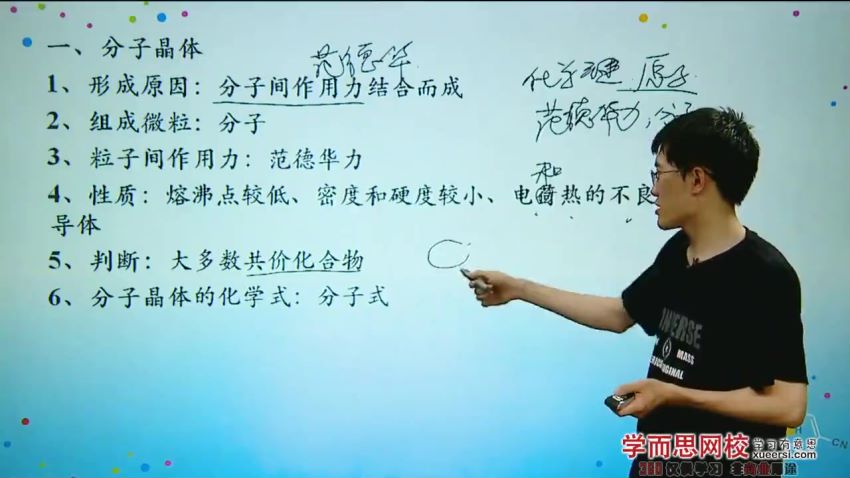 一、分子晶体
范德华
1、形成原因：分子间作用力结合而成
化学键 原子
2、组成微粒：分子
范德华力，分子
3、粒子间作用力：范德华力
和
4、性质：熔沸点较低、密度和硬度较小、电荷热的不良
导体
5、判断：大多数共价化合物
6、分子晶体的化学式：分子式
INVERSE
MASS
ORIGINAL
H
CN
学而思网校 学习有意思
xueersi.com
360 仅供学习 非商业用途